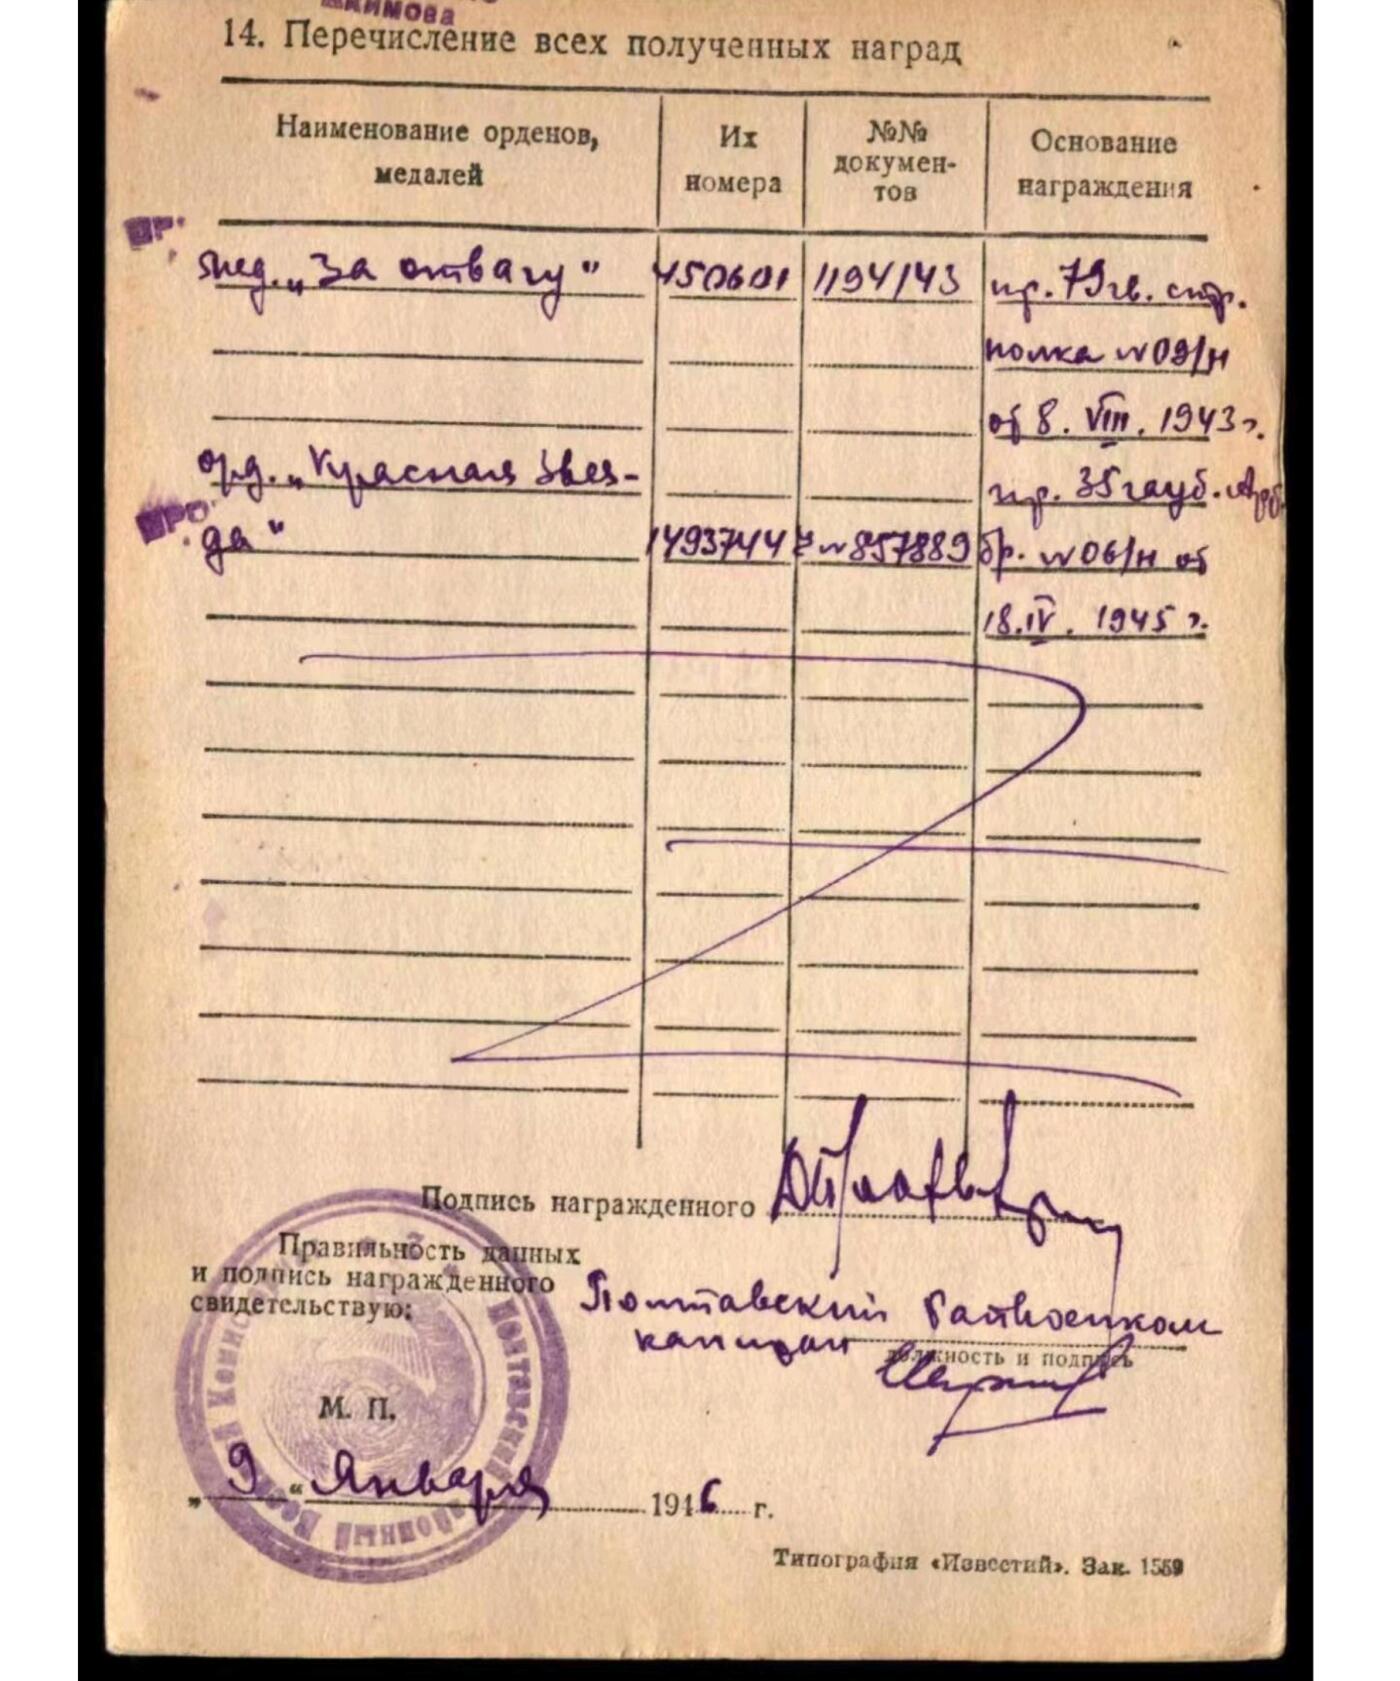 Акимова
14. Перечисление всех полученных наград
Наименование орденов, медалей
Их номера
№№ документов
Основание награждения
мед. „За отвагу“ 450601 1194/43 пр. 79 гв. стр.
полка №09/н
от 8. VIII. 1943 г.
орд. „Красная Звез- пр. 35 гауб. Арт.
да“ 1493744 №857889 бр. №06/н от
18.IV. 1945 г.
Подпись награжденного
Правильность данных
и подпись награжденного
свидетельствую:
Полтавский Райвоенком
капитан
должность и подпись
М. П.
„ 9 “ Января 1946 г.
Типография «Известий». Зак. 1559